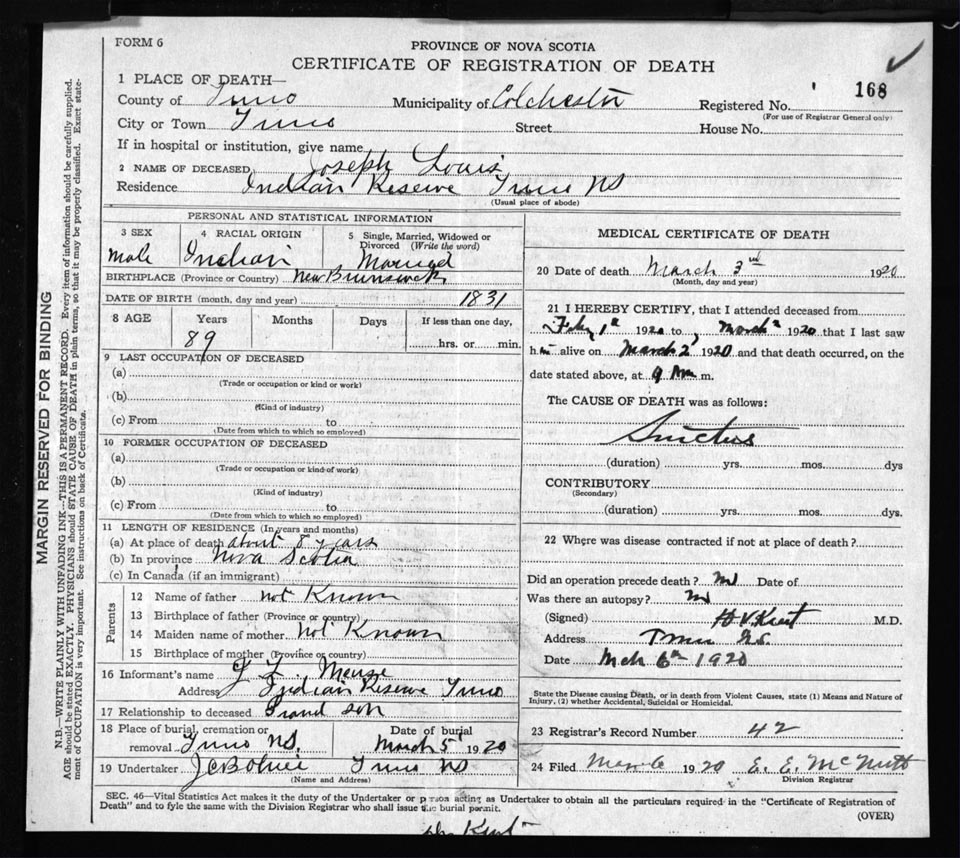 FORM 6
PROVINCE OF NOVA SCOTIA
CERTIFICATE OF REGISTRATION OF DEATH
168
1 PLACE OF DEATH—
County of Truro Municipality of Colchester Registered No.
(For use of Registrar General only)
City or Town Truro Street House No.
If in hospital or institution, give name
2 NAME OF DECEASED Joseph Louis
Residence Indian Reserve Truro NS
(Usual place of abode)
PERSONAL AND STATISTICAL INFORMATION
3 SEX 4 RACIAL ORIGIN 5 Single, Married, Widowed or Divorced (Write the word)
Male Indian Married
BIRTHPLACE (Province or Country) New Brunswick
DATE OF BIRTH (month, day and year) 1831
8 AGE Years Months Days If less than one day,
89 hrs. or min.
9 LAST OCCUPATION OF DECEASED
(a)
(Trade or occupation or kind or work)
(b)
(Kind of industry)
(c) From to
(Date from which to which so employed)
10 FORMER OCCUPATION OF DECEASED
(a)
(Trade or occupation or kind of work)
(b)
(Kind of industry)
(c) From to
(Date from which to which so employed)
11 LENGTH OF RESIDENCE (In years and months)
(a) At place of death about 8 years
(b) In province Nova Scotia
(c) In Canada (if an immigrant)
Parents
12 Name of father Not Known
13 Birthplace of father (Province or country)
14 Maiden name of mother Not Known
15 Birthplace of mother (Province or country)
16 Informant's name Meuse
Address Indian Reserve Truro
17 Relationship to deceased Grand son
18 Place of burial, cremation or removal Truro NS. Date of burial March 5 1920
19 Undertaker Truro NS
(Name and Address)
MEDICAL CERTIFICATE OF DEATH
20 Date of death March 3rd 1920
(Month, day and year)
21 I HEREBY CERTIFY, that I attended deceased from
Feby 1st 1920 to March 2 1920 that I last saw
him alive on March 2 1920 and that death occurred, on the
date stated above, at 9 m.
The CAUSE OF DEATH was as follows:
(duration) yrs. mos. dys
CONTRIBUTORY
(Secondary)
(duration) yrs. mos. dys.
22 Where was disease contracted if not at place of death?
Did an operation precede death? No Date of
Was there an autopsy? No
(Signed) H V Kent M.D.
Address Truro N.S.
Date Mch 6th 1920
State the Disease causing Death, or in death from Violent Causes, state (1) Means and Nature of
Injury, (2) whether Accidental, Suicidal or Homicidal.
23 Registrar's Record Number 42
24 Filed Mar 6 1920 E. E. McNutt
Division Registrar
SEC. 46—Vital Statistics Act makes it the duty of the Undertaker or person acting as Undertaker to obtain all the particulars required in the "Certificate of Registration of
Death" and to fyle the same with the Division Registrar who shall issue the burial permit.
(OVER)
Dr Kent
MARGIN RESERVED FOR BINDING
N.B.—WRITE PLAINLY WITH UNFADING INK—THIS IS A PERMANENT RECORD. Every item of information should be carefully supplied.
AGE should be stated EXACTLY. PHYSICIANS should STATE CAUSE OF DEATH in plain terms, so that it may be properly classified. Exact state-
ment of OCCUPATION is very important. See instructions on back of Certificate.